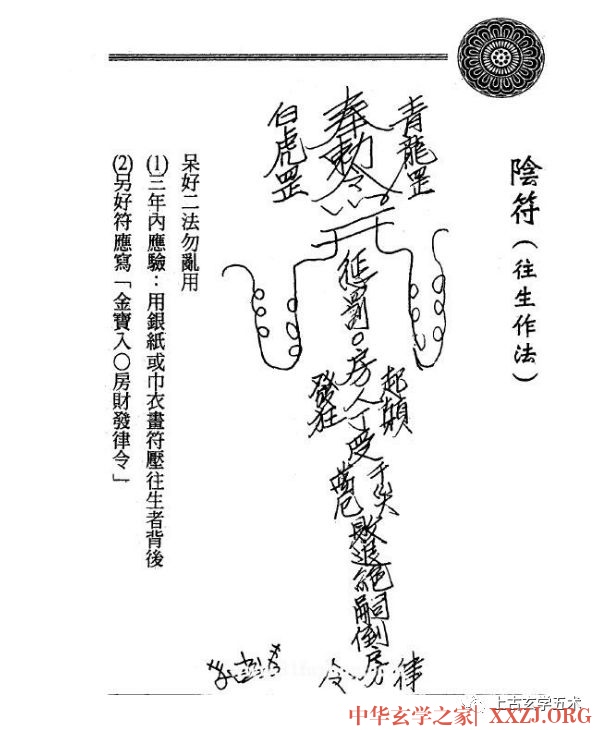 陰符(往生作法)
青龍罡
奉勅令
白虎罡
惩罰○房人丁受
起顛
發狂
敗退絕嗣倒房
律
令
呆好二法勿亂用
(1)三年內應驗:用銀紙或巾衣畫符壓往生者背後
(2)另好符應寫「金寶入○房財發律令」
上古玄学五术
中华玄学之家 XXZJ.ORG